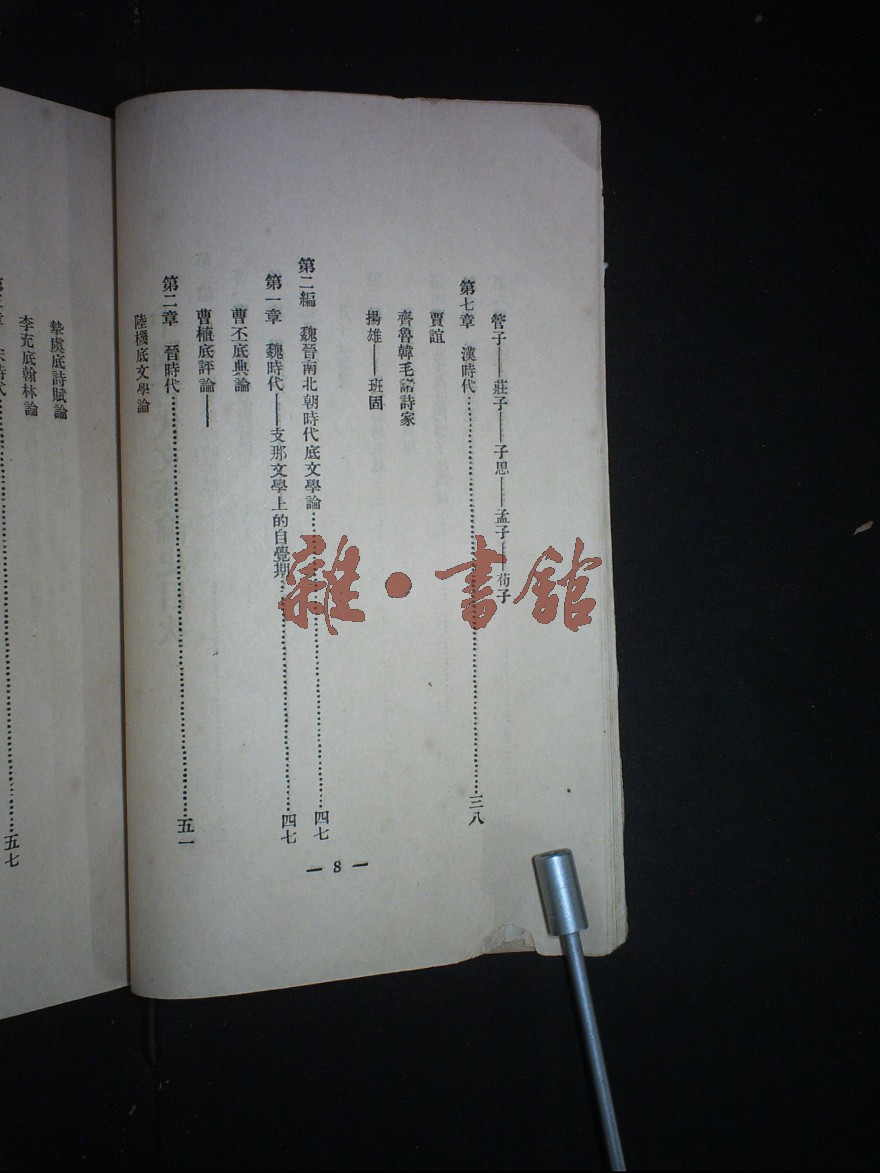 管子——莊子——子思——孟子——荀子
第七章 漢時代……三八
賈誼
齊魯韓毛諸詩家
揚雄——班固
第二編 魏晉南北朝時代底文學論……四七
第一章 魏時代——支那文學上的自覺期……四七
曹丕底典論
曹植底評論——
第二章 晉時代……五一
陸機底文學論
— 8 —
摯虞底詩賦論
李充底翰林論
章 宋時代……五七
雜·書館